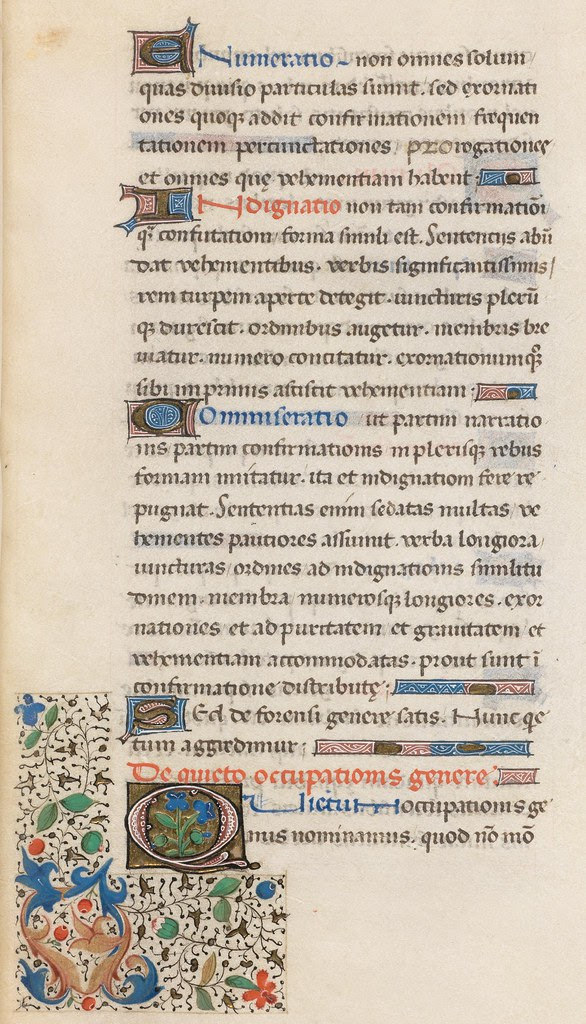 ENumeratio non omnes solum
quas diuisio particulas sumit. sed exornati
ones quoqꝫ addit confirmationem frequen
tationem percunctationes, prorogationes
et omnes quę vehementiam habent:
INdignatio non tam confirmatiōi
qᷓ confutationi forma simili est. Sententiis abū
dat vehementibus. verbis significantissimis/
rem turpem aperte detegit. iuncturis plerū
qꝫ durescit. ordinibus augetur. membris bre
uiatur. numero concitatur. exornationumqꝫ
sibi imprimis asciscit vehementiam:
COmmiseratio ut partim narratio
nis partim confirmationis in plerisqꝫ rebus
formam imitatur. ita et indignationi fere re
pugnat. Sententias enim sedatas multas, ve
hementes pautiores assumit. verba longiora,
iuncturas, ordines ad indignationis similitu
dinem. membra numerosqꝫ longiores. exor
nationes et ad puritatem et grauitatem et
vehementiam accommodatas. prout sunt ī
confirmatione distributę:
SEd de forensi genere satis. Nunc qe
tum aggredimur:
De quieto occupationis genere:
QUietum occupationis ge
nus nominamus. quod nō mō